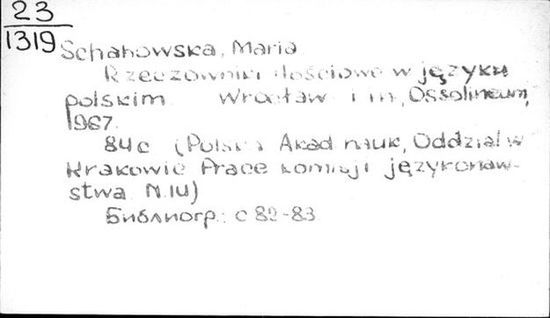 23
1319
Schabowska, Maria
Rzeczowniki ilościowe w języku
polskim Wrocław i in, Ossolineum,
1967.
84 c (Polska Akad nauk, Oddział w
Krakowie Prace komisji językoznaw-
stwa N.14)
Библиогр.: с 82-83